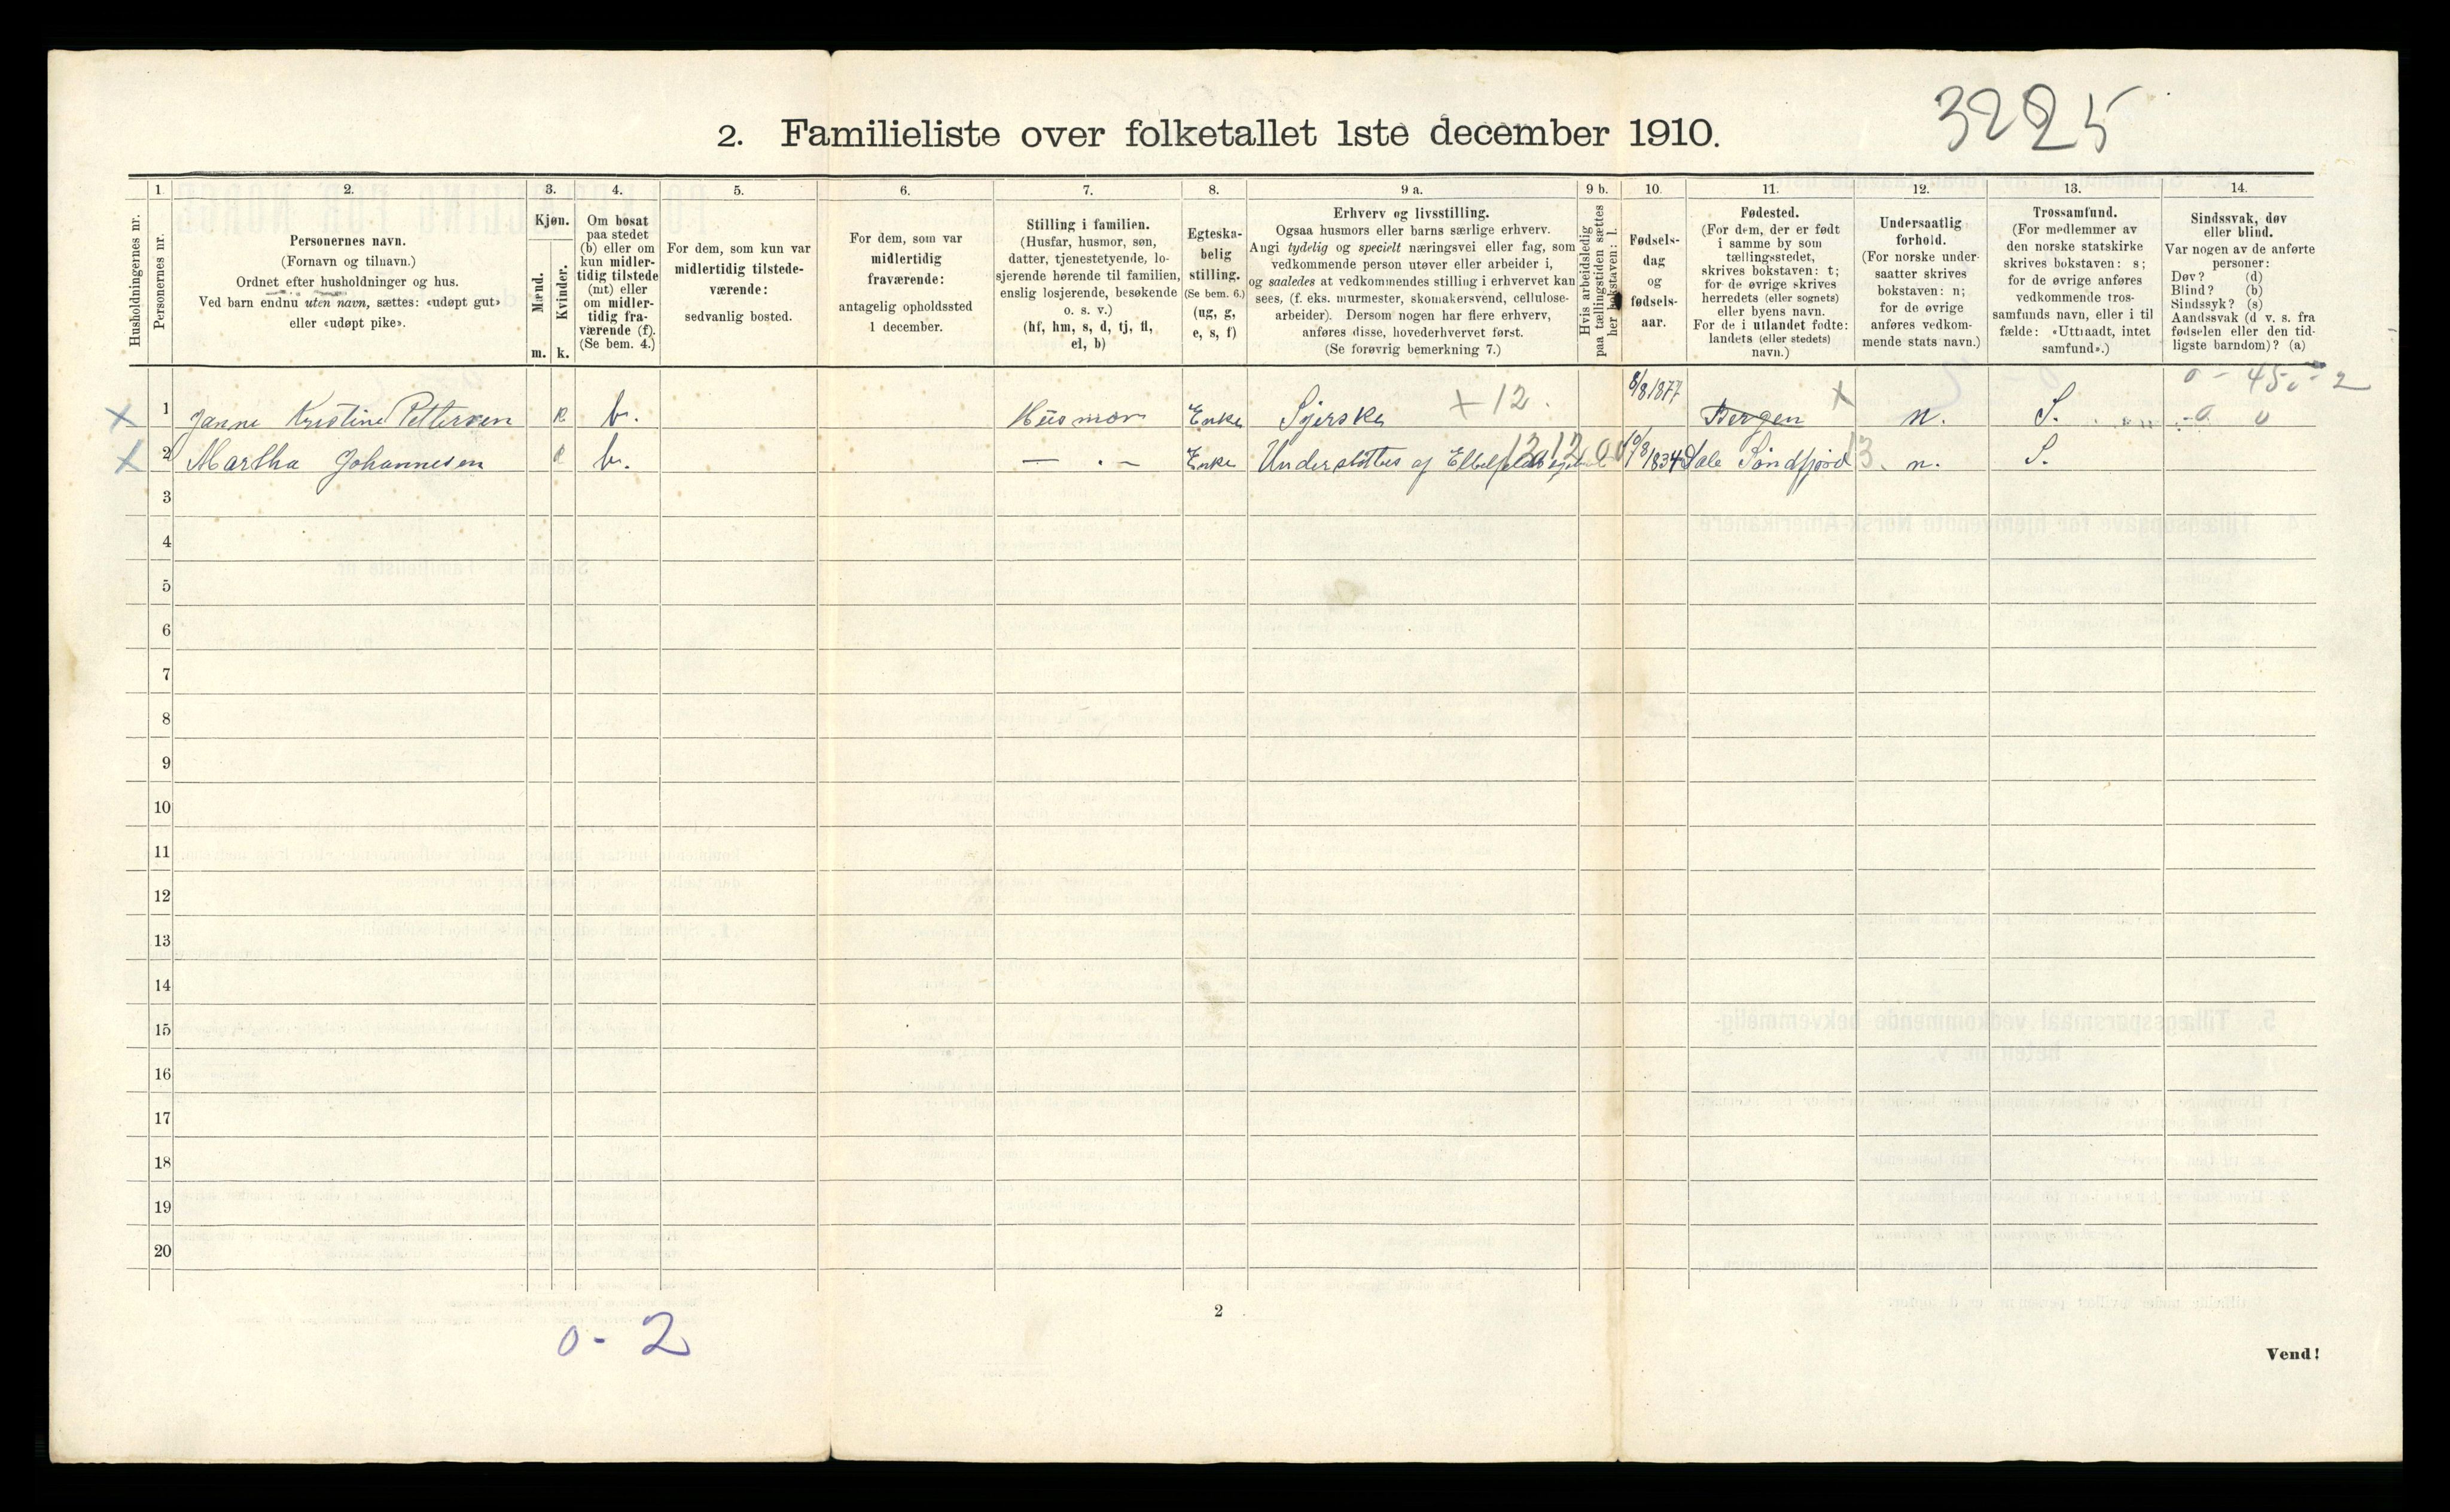 3225
2. Familieliste over folketallet 1ste december 1910.
1. 2. 3. 4. 5. 6. 7. 8. 9 a. 9 b. 10. 11. 12. 13. 14.
Husholdningernes nr.
Personernes nr.
Personernes navn.
(Fornavn og tilnavn.)
Ordnet efter husholdninger og hus.
Ved barn endnu uten navn, sættes: «udøpt gut»
eller «udøpt pike».
Kjøn.
Mænd.
Kvinder.
m. k.
Om bosat
paa stedet
(b) eller om
kun midler-
tidig tilstede
(mt) eller
om midler-
tidig fra-
værende (f).
(Se bem. 4.)
For dem, som kun var
midlertidig tilstede-
værende:
sedvanlig bosted.
For dem, som var
midlertidig
fraværende:
antagelig opholdssted
1 december.
Stilling i familien.
(Husfar, husmor, søn,
datter, tjenestetyende, lo-
sjerende hørende til familien,
enslig losjerende, besøkende
o. s. v.)
(hf, hm, s, d, tj, fl,
el, b)
Egteska-
belig
stilling.
(Se bem. 6.)
(ug, g,
e, s, f)
Erhverv og livsstilling.
Ogsaa husmors eller barns særlige erhverv.
Angi tydelig og specielt næringsvei eller fag, som
vedkommende person utøver eller arbeider i,
og saaledes at vedkommendes stilling i erhvervet kan
sees, (f. eks. murmester, skomakersvend, cellulose-
arbeider). Dersom nogen har flere erhverv,
anføres disse, hovederhvervet først.
(Se forøvrig bemerkning 7.)
Hvis arbeidsledig
paa tællingstiden sættes
her bokstaven: l.
Fødsels-
dag
og
fødsels-
aar.
Fødested.
(For dem, der er født
i samme by som
tællingsstedet,
skrives bokstaven: t;
for de øvrige skrives
herredets (eller sognets)
eller byens navn.
For de i utlandet fødte:
landets (eller stedets)
navn.)
Undersaatlig
forhold.
(For norske under-
saatter skrives
bokstaven: n;
for de øvrige
anføres vedkom-
mende stats navn.)
Trossamfund.
(For medlemmer av
den norske statskirke
skrives bokstaven: s;
for de øvrige anføres
vedkommende tros-
samfunds navn, eller i til
fælde: «Uttraadt, intet
samfund».)
Sindssvak, døv
eller blind.
Var nogen av de anførte
personer:
Døv? (d)
Blind? (b)
Sindssyk? (s)
Aandssvak (d. v. s. fra
fødselen eller den tid-
ligste barndom)? (a)
X 1 Janne Kristine Pettersen k b. Husmor Enke Syerske X 12. 8/8 1877 Bergen X n. S. 0 0
X 2 Martha Johannesen k b. — . — Enke Understøttes af 12.12 1834 Dale Søndfjord 13. n. S.
3
4
5
6
7
8
9
10
11
12
13
14
15
16
17
18
19
20
2
0 - 2
Vend!